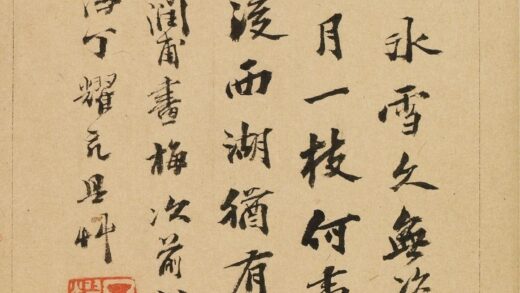 冰雪久無
月一枝何
後西湖猶有
潤甫畫梅次前
丁耀亢具草